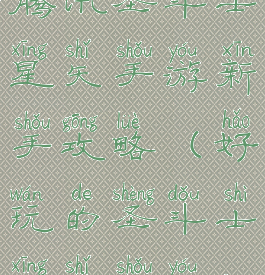 腾 讯 圣 斗 士
xīng shǐ shǒu yóu xīn
星 矢 手 游 新
shǒu gōng lüè hǎo
手 攻 略 （ 好
wán de shèng dǒu shì
玩 的 圣 斗 士
xīng shǐ shǒu yóu